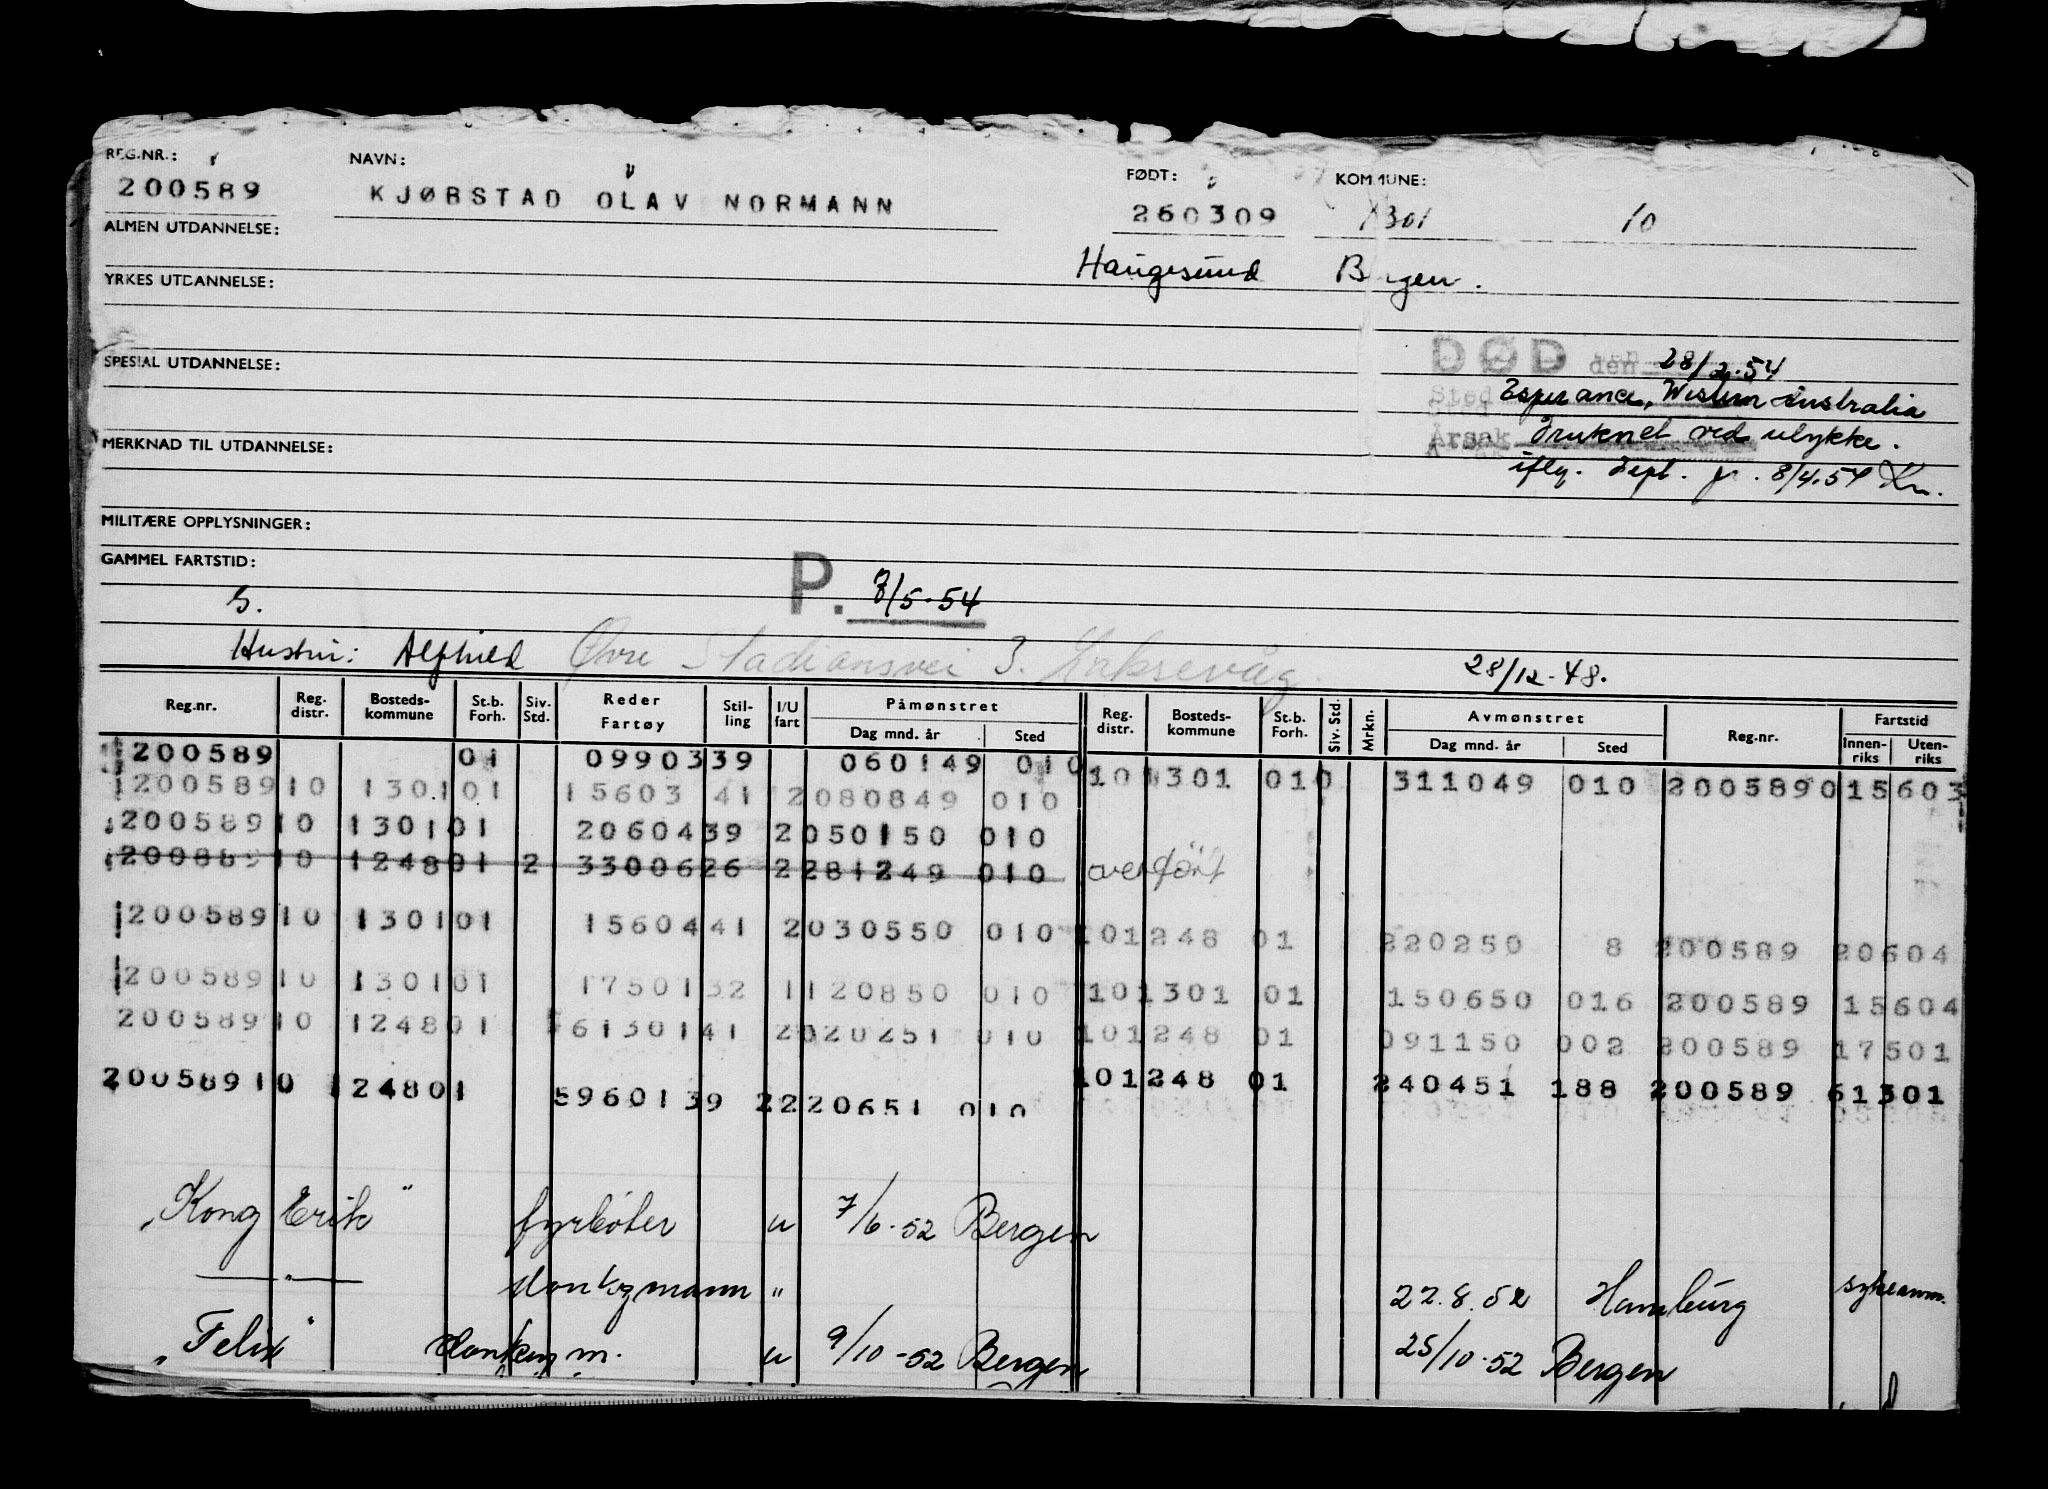 REG.NR.: NAVN: FØDT: KOMMUNE:
200589 KJØRSTAD OLAV NORMANN 260309 1301 10
ALMEN UTDANNELSE:
Haugesund Bergen.
YRKES UTDANNELSE:
DØD den 28/2.54
SPESIAL UTDANNELSE:
Sted Esperance, Western Australia
Årsak Druknet ved ulykke.
MERKNAD TIL UTDANNELSE:
iflg. Dept. 8/4.54 Kn.
MILITÆRE OPPLYSNINGER:
GAMMEL FARTSTID:
P. 7/5.54
S.
Hustru: Alfhild Øvre Stadionsvei 3. Laksevåg. 28/12-48.
Reg.nr. Reg. distr. Bosteds-kommune St.b. Forh. Siv. Std. Reder Fartøy Stil-ling I/U fart Påmønstret Dag mnd. år Sted Reg. distr. Bosteds-kommune St.b. Forh. Siv. Std. Mrkn. Avmønstret Dag mnd. år Sted Reg.nr. Fartstid Innen-riks Uten-riks
200589 01 0990339 060149 010
101301 010 311049 010 2005890 15603
20058910 130101 15603 41 2080849 010
20058910 130101 2060439 2050150 010
20058910 124801 2 3300626 2281249 010 overført
20058910 130101 1560441 2030550 010
101248 01 220250 8 200589 20604
20058910 130101 1750132 1120850 010
101301 01 150650 016 200589 15604
20058910 124801 6130141 2020251 010
101248 01 091150 002 200589 17501
20058910 124801 5960139 2220651 010
101248 01 240451 188 200589 61301
"Kong Erik" fyrbøter u 7/6-52 Bergen
—"— donkeymann " 22.8.52 Hamburg
"Felix" donkeym. u 9/10-52 Bergen 25/10-52 Bergen